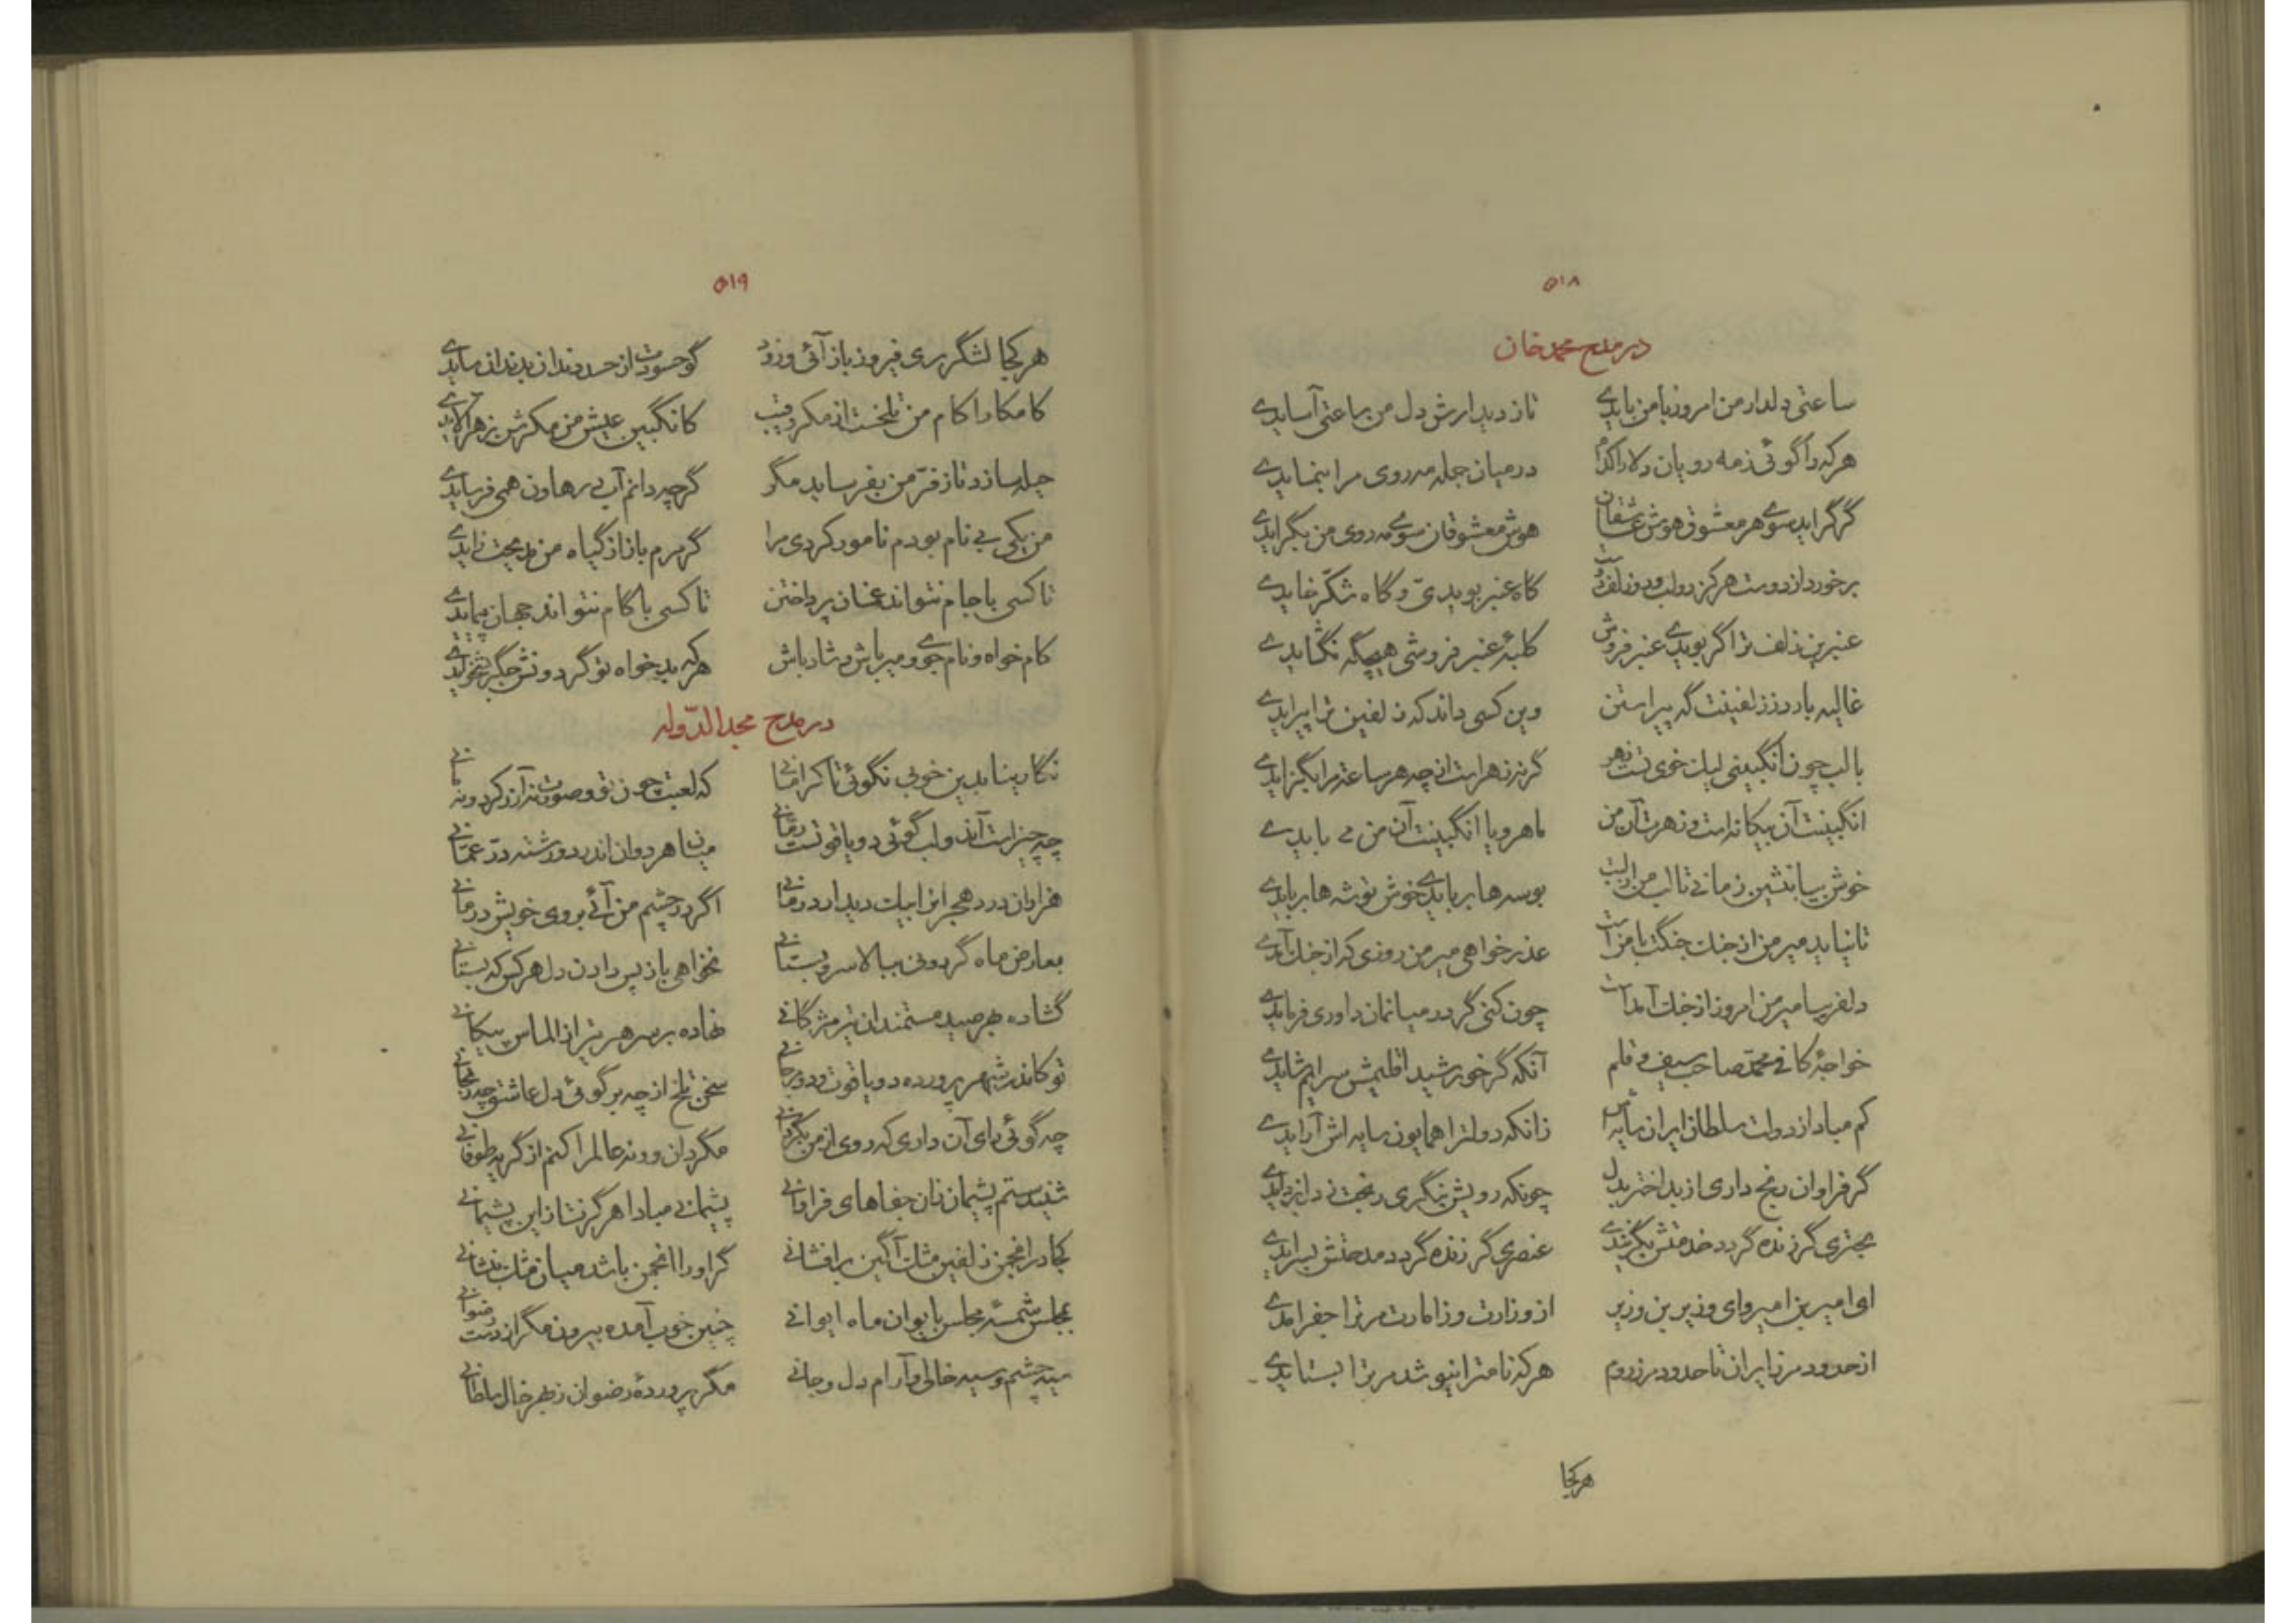 ۵۱۸
در مدح محمد خان
ساعتی دلدار من امروز با من بایدی تا ز دیدارش دل من ساعتی آسایدی
هرکه را گوئی ز مه رویان دلارا کدام در میان جمله مه روی مرا بنمایدی
گر گراید سوی هر معشوق هوش عاشقان هوش معشوقان سوی مه روی من بگرایدی
برخورد از دوست هرکز دو لب و دو زلف دوست گاه عنبر بویدی و گاه شکّر خایدی
عنبرین زلف ترا گر بویدی عنبر فروش کلبهٔ عنبر فروشی هیچگه نگشایدی
غالیه بارد ز زلفینت گه پیراستن وین کسی داند که زلفین ترا پیرایدی
با لب چون انگبینی لیک خوی تست زهر گرنه زهر است از چه هر ساعت مرا بگزایدی
انگبینت آن بیگانه است و زهرت آن من ماهرویا انگبینت آن من می بایدی
خوش بیا بنشین زمانی تا لب من از لبت بوسه ها بربایدی خوش توشه ها بربایدی
تا نیاید میر من از جنگ جنگت با من است عذر خواهی میر من روزی که از جنگ آیدی
دلفریبا میر من امروز از جنگ آمد است چون کنی گر در میانمان داوری فرمایدی
خواجهٔ کافی محمّد صاحب سیف و قلم آنکه گر خورشید اقلیمش سرایم شایدی
کم مباد از دولت سلطان ایران سایه اش زانکه دولترا همایون سایه اش آرایدی
گر فراوان رنج داری از بد اختر بدل چونکه رویش بنگری رنجت ز دل بزدایدی
بحتری گر زنده گردد خدمتش بگزیندی عنصری گر زنده گردد مدحتش بسرایدی
ای امیر بن امیر و ای وزیر بن وزیر از وزارت وز امارت مر ترا جفر آمدی
از حدود مرز ایران تا حدود مرز روم هرکه نامت را نیوشد مر ترا بستایدی
هرکجا
۵۱۹
هرکجا لشگر بری فیروز باز آئی و زود گو حسودت از حسد دندان بدندان سایدی
کامکارا کام من تلخست از مکر رقیب کانگبین عیش من مکرش بزهر آلایدی
حیله سازد تا ز فرّ من بفرساید مگر گرچه دانم آب در هاون همی فرسایدی
من یکی بی نام بودم نامور کردی مرا گر مرم باز از گیاه من مدیحت زایدی
تا کسی با جام نتواند عنان پرداختن تا کسی با گام نتواند جهان پیمایدی
کام خواه و نام جوی و میر باش و شاد باش هرکه بدخواه تو گردونش جگر بشخولدی
در مدح مجد الدّوله
نگارینا بدین خوبی نگوئی تا کرا مانی که لعبت چون تو و صورت نه آزر کرد و نه مانی
چه چیز است آندو لب گوئی دو یاقوتست رمّانی میان هر دوان اندر دو رشته درّ عمّانی
فراوان درد هجرانرا بیک دیدار درمانی اگر در چشم من آئی بروی خویش درمانی
بعارض ماه گردونی ببالا سرو بستانی نخواهی باز پس دادن دل هرکس که بستانی
گشاده بهر صید مستمندان تیر مژگانی نهاده بر سر هر تیر از الماس پیکانی
تو کاندر شهد پرورده دو یاقوت و دو مرجانی سخن تلخ از چه برگوئی دل عاشق چه رنجانی
چه گوئی رای آن داری که روی از من بگردانی مگردان ورنه عالم را کنم از گریه طوفانی
شنیدستم پشیمان زان جفاهای فراوانی پشیمانی مبادا هرگزت از این پشیمانی
کجا در انجمن زلفین مشک آگین برافشانی گر او را انجمن باشد میان مشک بنشانی
بمجلس شمسهٔ مجلس بایوان ماه ایوانی چنین خوب آمده بیرون مگر از دست رضوانی
سیه چشم و سیه خالی و آرام دل و جانی مگر پروردهٔ رضوان ز بهر خال سلطانی